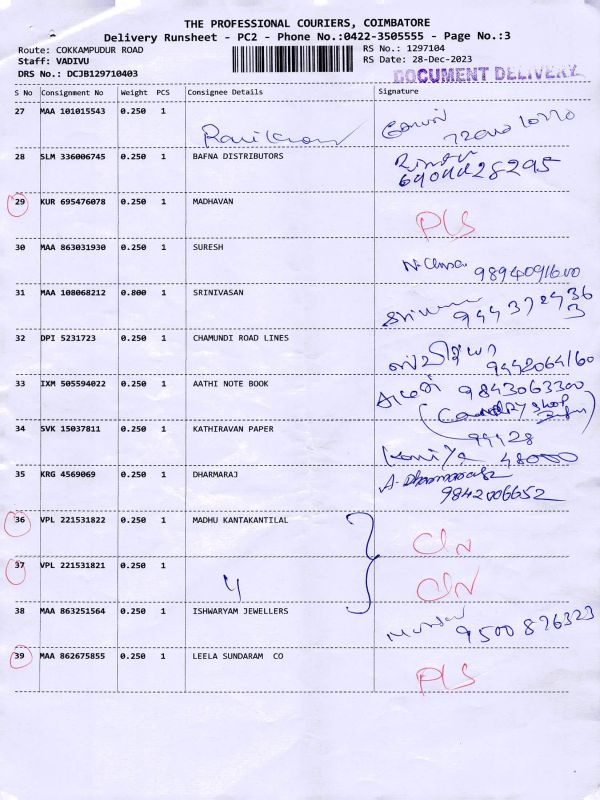 THE PROFESSIONAL COURIERS, COIMBATORE
Delivery Runsheet - PC2 - Phone No.:0422-3505555 - Page No.:3
Route: COKKAMPUDUR ROAD RS No.: 1297104
Staff: VADIVU RS Date: 28-Dec-2023
DRS No.: DCJB129710403 DOCUMENT DELIVERY
S No Consignment No Weight PCS Consignee Details Signature
27 MAA 101015543 0.250 1
28 SLM 336006745 0.250 1 BAFNA DISTRIBUTORS
29 KUR 695476078 0.250 1 MADHAVAN PLS
30 MAA 863031930 0.250 1 SURESH
9894091600
31 MAA 108068212 0.800 1 SRINIVASAN
32 DPI 5231723 0.250 1 CHAMUNDI ROAD LINES
9442064160
33 IXM 505594022 0.250 1 AATHI NOTE BOOK 9843063300
34 SVK 15037811 0.250 1 KATHIRAVAN PAPER 94428
48000
35 KRG 4569069 0.250 1 DHARMARAJ A. Dharmaraj
9842006652
36 VPL 221531822 0.250 1 MADHU KANTAKANTILAL
37 VPL 221531821 0.250 1
38 MAA 863251564 0.250 1 ISHWARYAM JEWELLERS
9500876323
39 MAA 862675855 0.250 1 LEELA SUNDARAM CO PLS